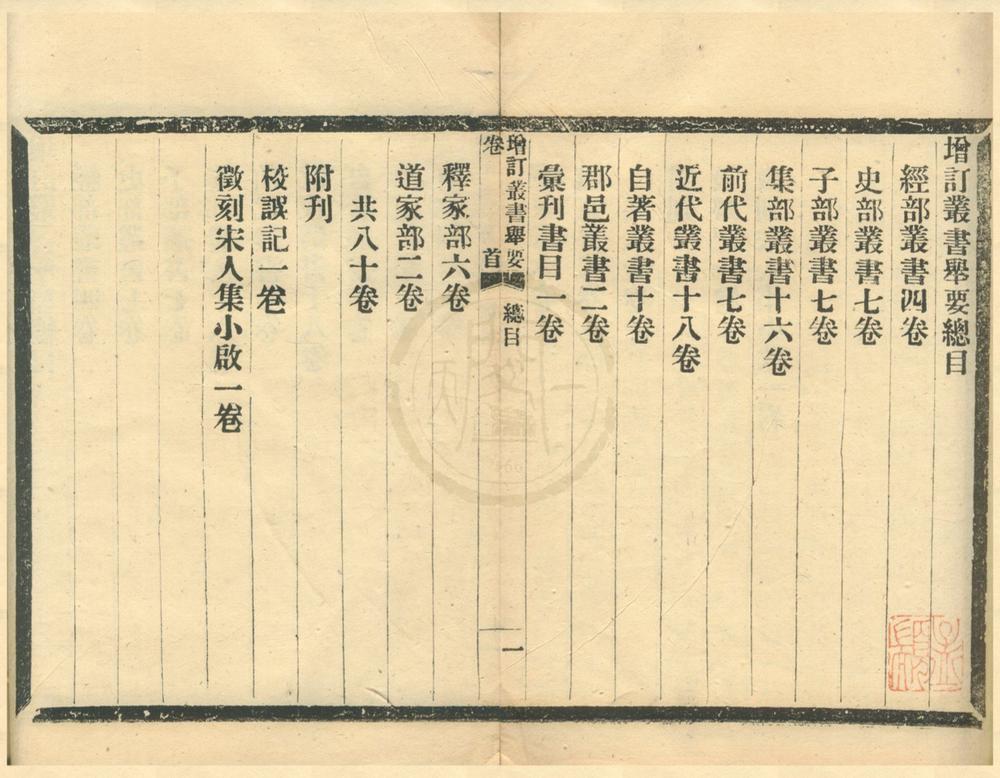 增訂叢書舉要總目
經部叢書四卷
史部叢書七卷
子部叢書七卷
集部叢書十六卷
前代叢書七卷
近代叢書十八卷
自著叢書十卷
郡邑叢書二卷
彙刊書目一卷
增訂叢書舉要
卷首
總目
一
釋家部六卷
道家部二卷
共八十卷
附刊
校誤記一卷
徵刻宋人集小啟一卷